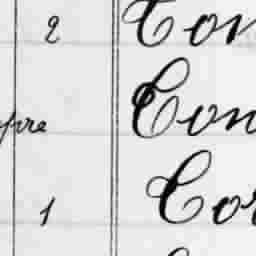 2 Con
Con
1 Cor